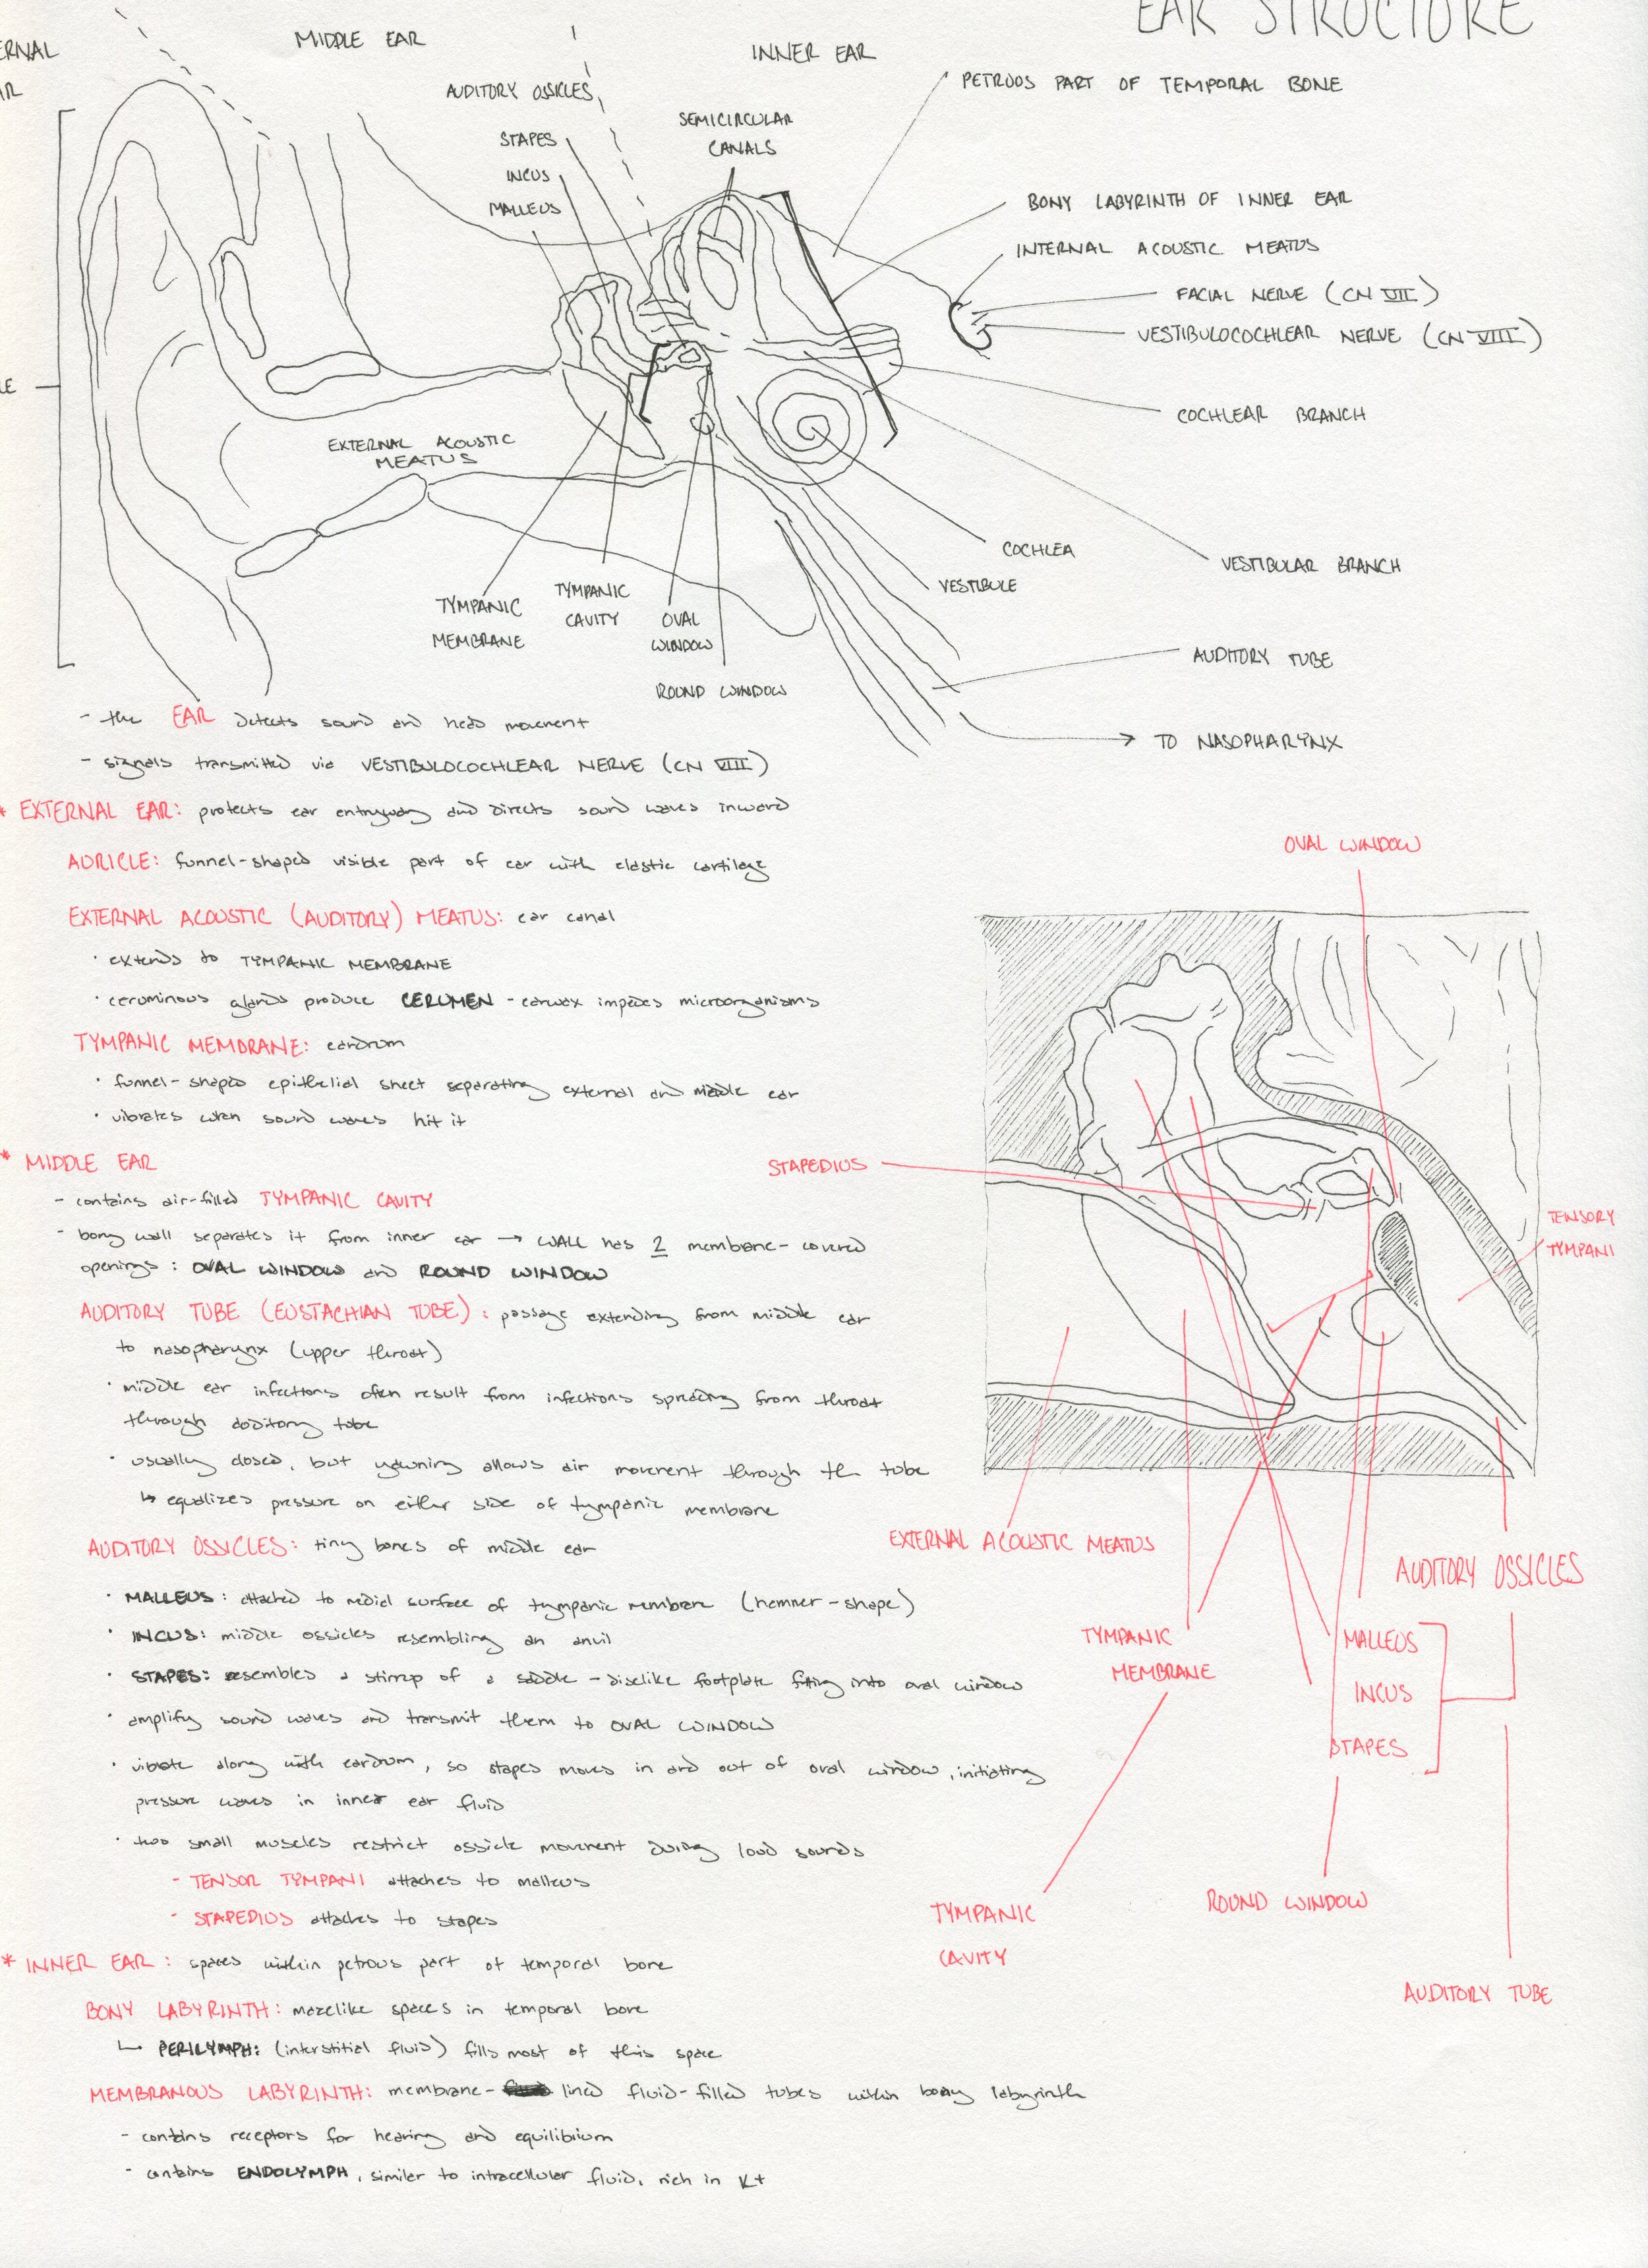 EAR STRUCTURE
MIDDLE EAR
INNER EAR
AUDITORY OSSICLES
STAPES
INCUS
MALLEUS
SEMICIRCULAR
CANALS
PETROUS PART OF TEMPORAL BONE
BONY LABYRINTH OF INNER EAR
INTERNAL ACOUSTIC MEATUS
FACIAL NERVE (CN VII)
VESTIBULOCOCHLEAR NERVE (CN VIII)
COCHLEAR BRANCH
EXTERNAL ACOUSTIC
MEATUS
COCHLEA
VESTIBULAR BRANCH
VESTIBULE
TYMPANIC
MEMBRANE
TYMPANIC
CAVITY
OVAL
WINDOW
ROUND WINDOW
AUDITORY TUBE
TO NASOPHARYNX
- the EAR detects sound and head movement
- signals transmitted via VESTIBULOCOCHLEAR NERVE (CN VIII)
* EXTERNAL EAR: protects ear entryway and directs sound waves inward
AURICLE: funnel-shaped visible part of ear with elastic cartilage
EXTERNAL ACOUSTIC (AUDITORY) MEATUS: ear canal
· extends to TYMPANIC MEMBRANE
· ceruminous glands produce CERUMEN - earwax impedes microorganisms
TYMPANIC MEMBRANE: eardrum
· funnel-shaped epithelial sheet separating external and middle ear
· vibrates when sound waves hit it
* MIDDLE EAR
- contains air-filled TYMPANIC CAVITY
- bony wall separates it from inner ear → WALL has 2 membrane-covered
openings: OVAL WINDOW and ROUND WINDOW
AUDITORY TUBE (EUSTACHIAN TUBE): passage extending from middle ear
to nasopharynx (upper throat)
· middle ear infections often result from infections spreading from throat
through auditory tube
· usually closed, but yawning allows air movement through th tube
↳ equalizes pressure on either side of tympanic membrane
AUDITORY OSSICLES: tiny bones of middle ear
· MALLEUS: attached to medial surface of tympanic membrane (hammer-shape)
· INCUS: middle ossicles resembling an anvil
· STAPES: resembles a stirrup of a saddle - disclike footplate fitting into oval window
· amplify sound waves and transmit them to OVAL WINDOW
· vibrate along with eardrum, so stapes moves in and out of oval window, initiating
pressure waves in inner ear fluid
· two small muscles restrict ossicle movement during loud sounds
- TENSOR TYMPANI attaches to malleus
- STAPEDIUS attaches to stapes
* INNER EAR: spaces within petrous part of temporal bone
BONY LABYRINTH: mazelike spaces in temporal bone
↳ PERILYMPH: (interstitial fluid) fills most of this space
MEMBRANOUS LABYRINTH: membrane-lined fluid-filled tubes within bony labyrinth
- contains receptors for hearing and equilibrium
- contains ENDOLYMPH, similar to intracellular fluid, rich in K+
OVAL WINDOW
STAPEDIUS
TENSORY
TYMPANI
EXTERNAL ACOUSTIC MEATUS
AUDITORY OSSICLES
TYMPANIC
MEMBRANE
MALLEUS
INCUS
STAPES
TYMPANIC
CAVITY
ROUND WINDOW
AUDITORY TUBE